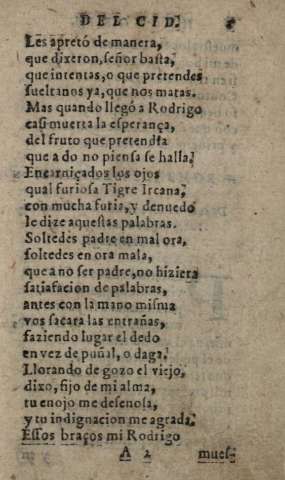 DEL CID.
Les apretó de manera,
que dixeron, señor basta,
que intentas, o que pretendes
sueltanos ya, que nos matas.
Mas quando llegó a Rodrigo
casi muerta la esperança,
del fruto que pretendia
que a do no piensa se halla,
Encarniçados los ojos
qual furiosa Tigre Ircana,
con mucha furia, y denuedo
le dize aquestas palabras.
Soltedes padre en mal ora,
soltedes en ora mala,
que a no ser padre, no hiziera
satiafacion de palabras,
antes con la mano misma
vos sacara las entrañas,
faziendo lugar el dedo
en vez de puñal, o daga.
Llorando de gozo el viejo,
dixo, fijo de mi alma,
tu enojo me desenoja,
y tu indignacion me agrada.
Essos braços mi Rodrigo
A 2 mues-